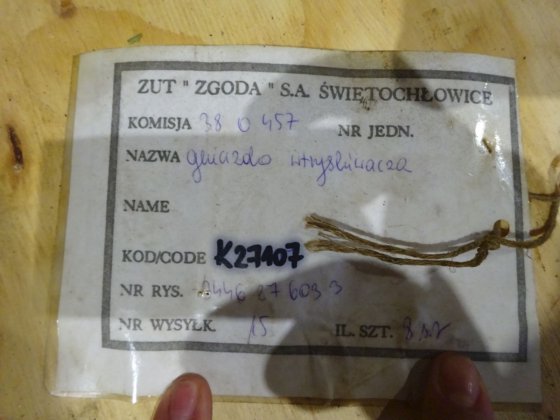 ZUT " ZGODA " S.A. ŚWIĘTOCHŁOWICE
KOMISJA 38 0 457 NR JEDN.
NAZWA gniazdo wtryskiwacza
NAME
KOD/CODE K27107
NR RYS.
NR WYSYŁK. 15 IL. SZT. 8 szt